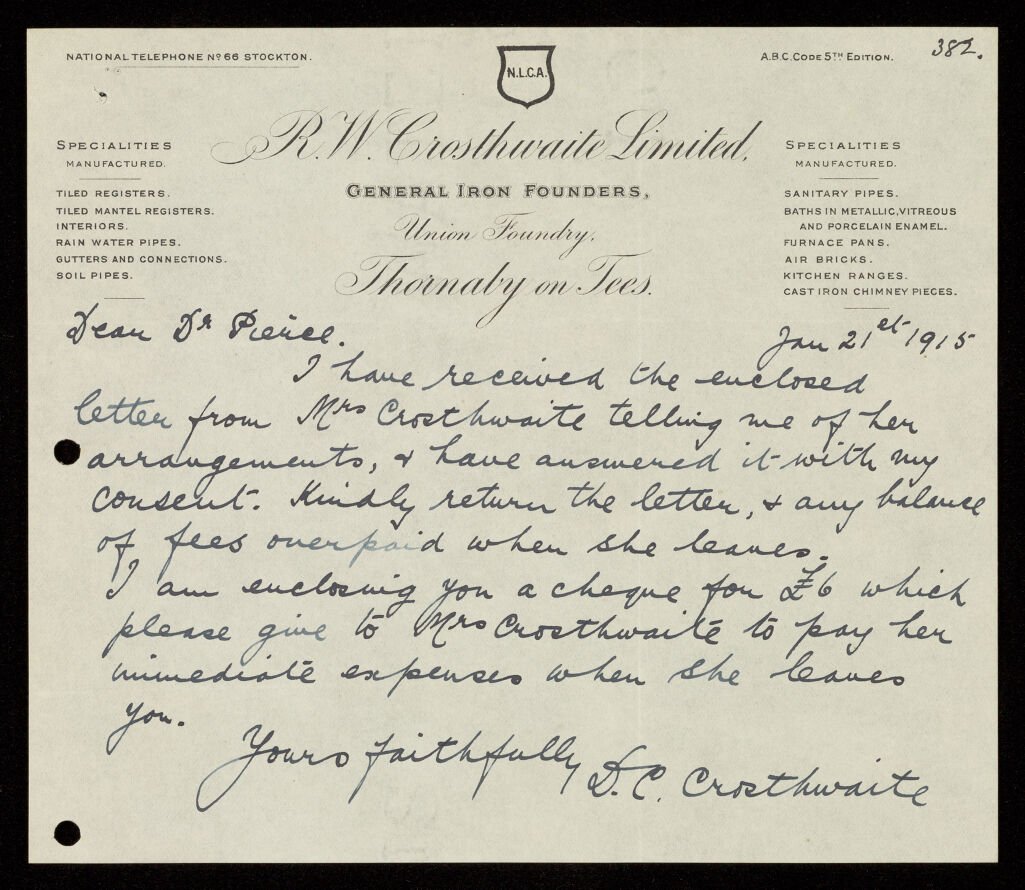 382.
NATIONAL TELEPHONE Nº 66 STOCKTON.
N.L.C.A.
A.B.C. CODE 5TH EDITION.
R.W. Crosthwaite Limited,
GENERAL IRON FOUNDERS,
Union Foundry,
Thornaby on Tees.
SPECIALITIES
MANUFACTURED.
TILED REGISTERS.
TILED MANTEL REGISTERS.
INTERIORS.
RAIN WATER PIPES.
GUTTERS AND CONNECTIONS.
SOIL PIPES.
SPECIALITIES
MANUFACTURED.
SANITARY PIPES.
BATHS IN METALLIC, VITREOUS
AND PORCELAIN ENAMEL.
FURNACE PANS.
AIR BRICKS.
KITCHEN RANGES.
CAST IRON CHIMNEY PIECES.
Jan 21st 1915
Dear Dr Pierce.
I have received the enclosed
letter from Mrs Crosthwaite telling me of her
arrangements, & have answered it with my
consent. Kindly return the letter, & any balance
of fees overpaid when she leaves.
I am enclosing you a cheque for £6 which
please give to Mrs Crosthwaite to pay her
immediate expenses when she leaves
you.
Yours faithfully
D. C. Crosthwaite